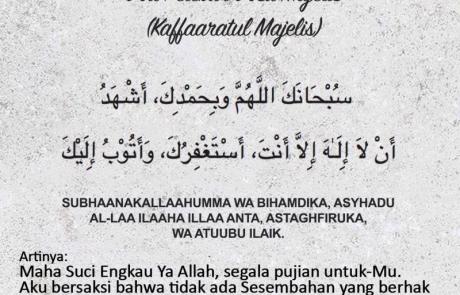 (Kaffaaratul Majelis)
سُبْحَانَكَ اللَّهُمَّ وَبِحَمْدِكَ، أَشْهَدُ
أَنْ لَا إِلَهَ إِلَّا أَنْتَ، أَسْتَغْفِرُكَ، وَأَتُوْبُ إِلَيْكَ
SUBHAANAKALLAAHUMMA WA BIHAMDIKA, ASYHADU
AL-LAA ILAAHA ILLAA ANTA, ASTAGHFIRUKA,
WA ATUUBU ILAIK.
Artinya:
Maha Suci Engkau Ya Allah, segala pujian untuk-Mu.
Aku bersaksi bahwa tidak ada Sesembahan yang berhak